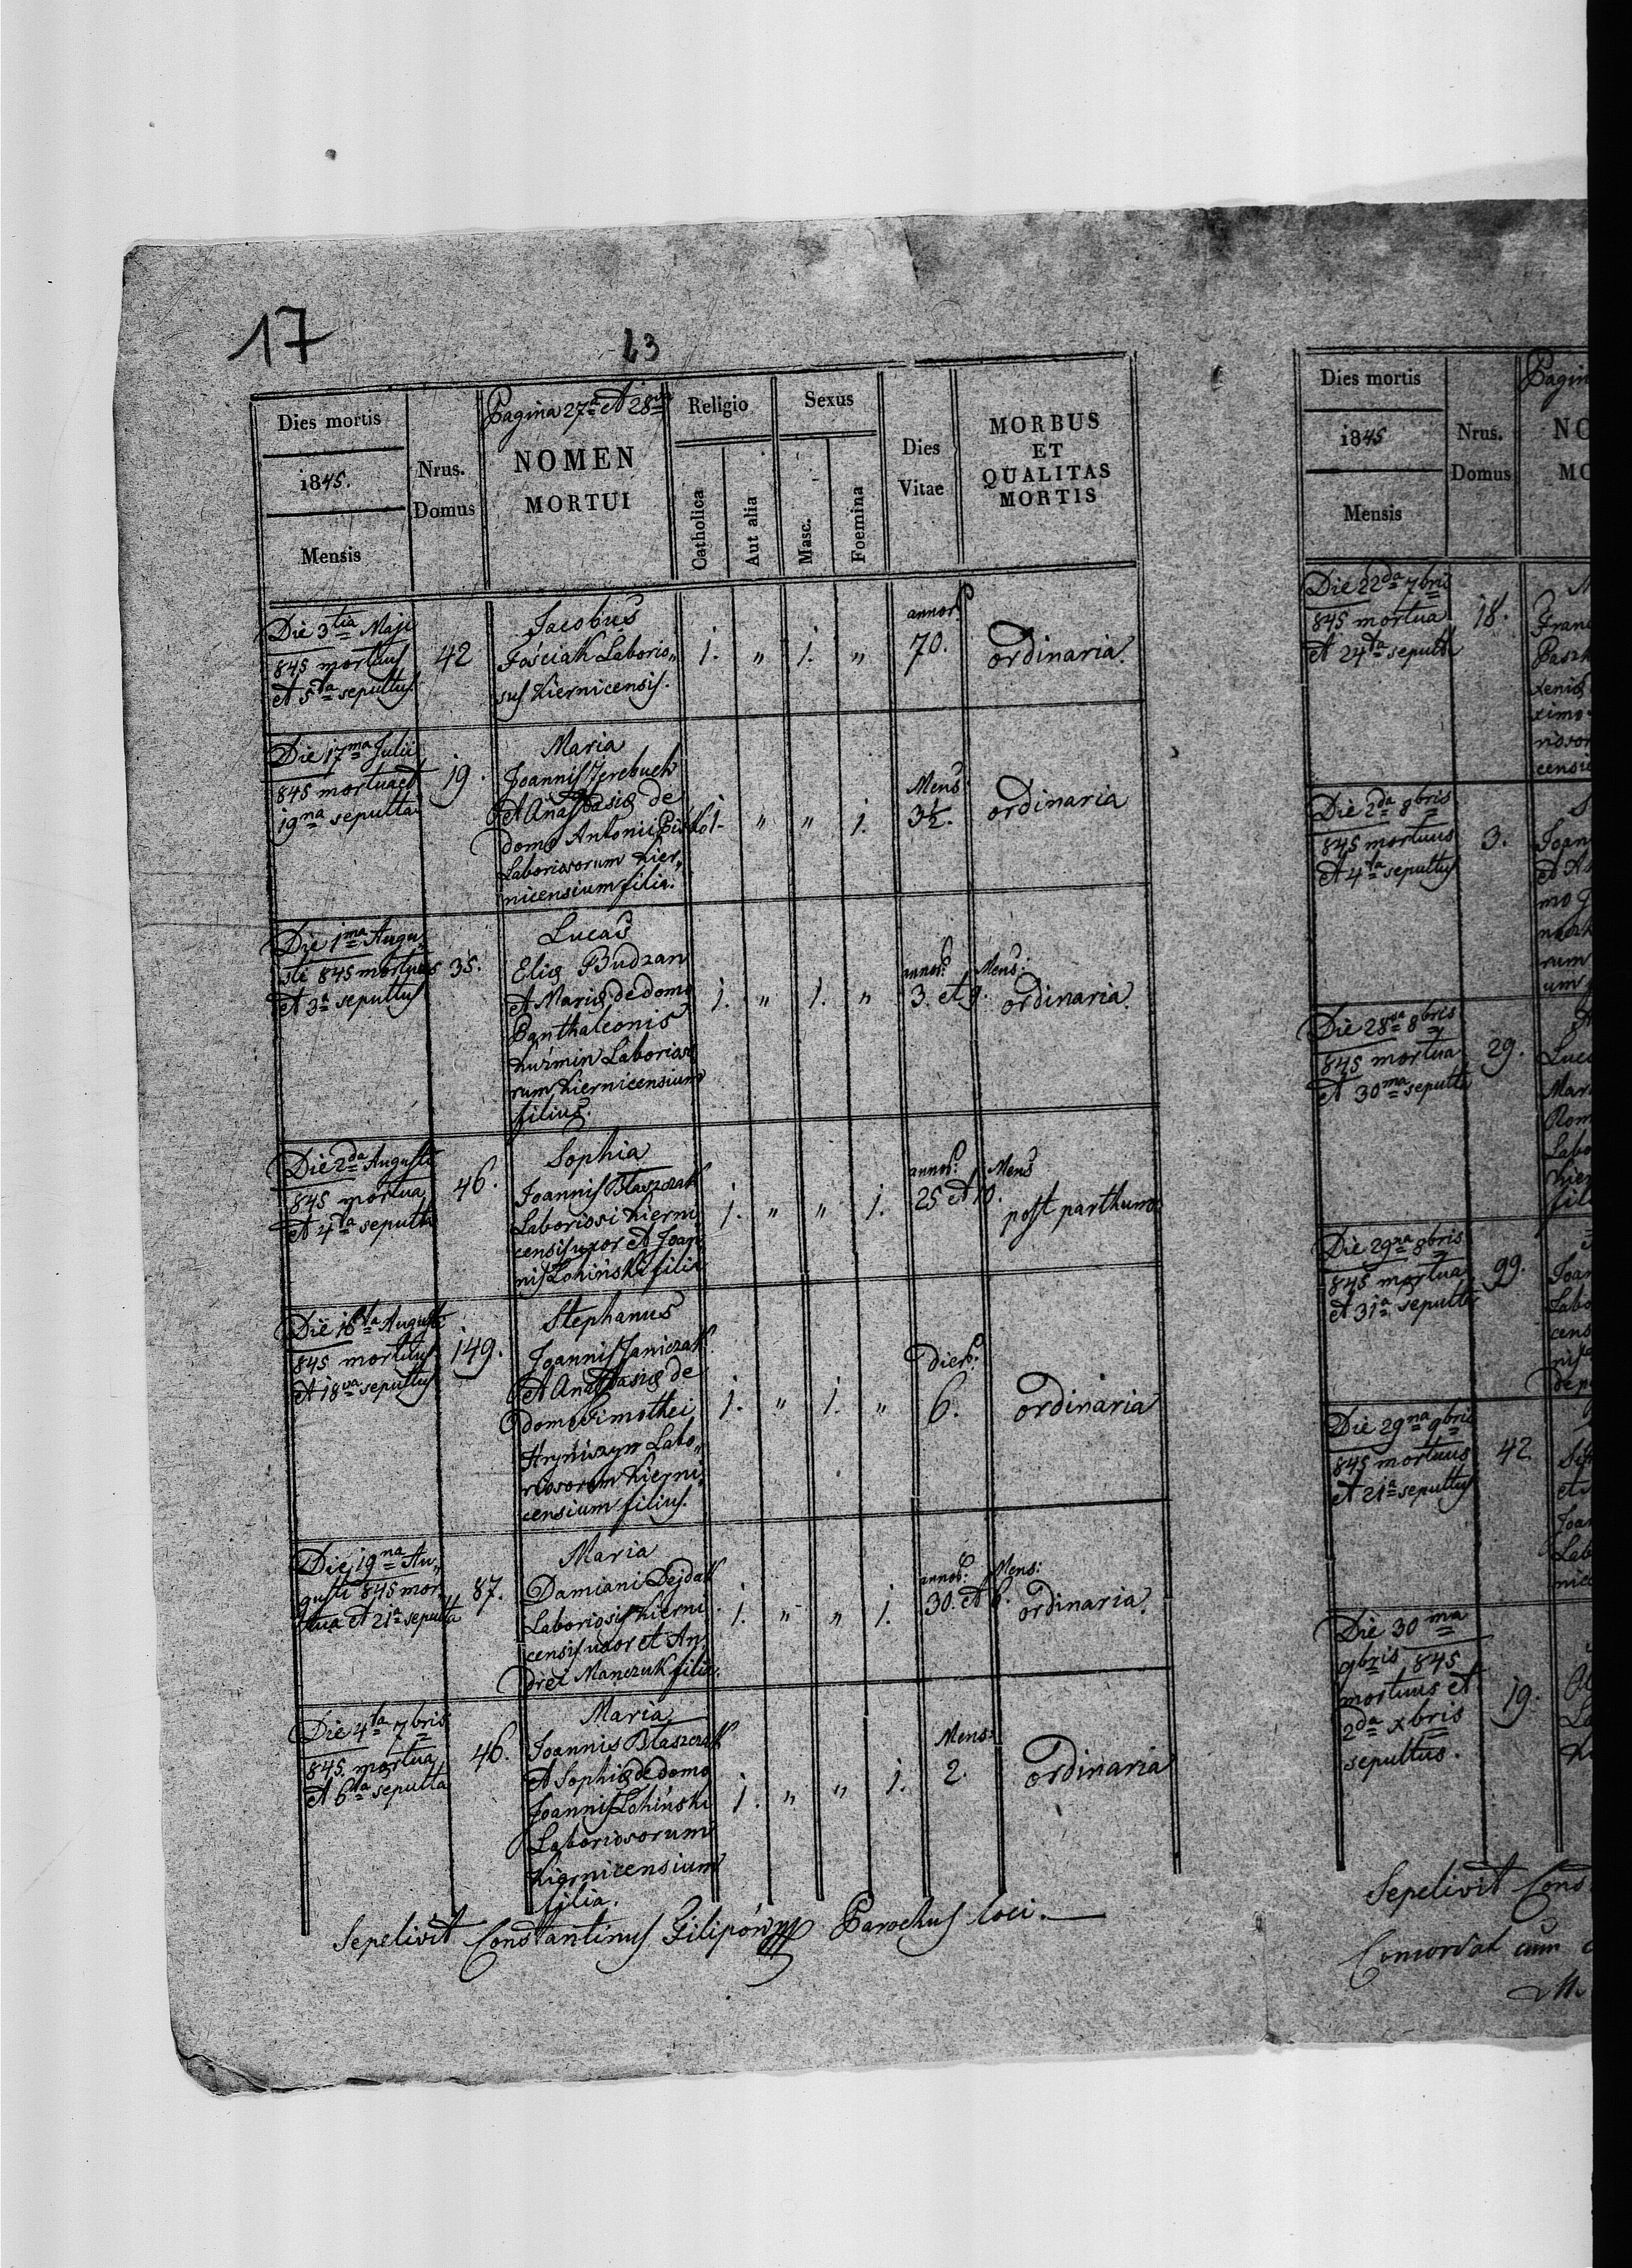 17
23
Dies mortis
1845.
Mensis
Nrus.
Domus
Pagina 27a et 28va
NOMEN
MORTUI
Religio
Catholica
Aut alia
Sexus
Masc.
Foemina
Dies
Vitae
MORBUS
ET
QUALITAS
MORTIS
Die 3tia Maji
845 mortuus
et 5ta sepultus
42
Jacobus
Fościak Laborio„
sus Kiernicensis.
1. „ 1. „
annor:
70.
ordinaria.
Die 17ma Julii
845 mortua et
19na sepulta
19.
Maria
Joannis Jerebuch
et Anastasiae de
domo Antonii
Laboriosorum Kier„
nicensium filia.
1. „ „ 1.
Mens:
3½.
ordinaria
Die 1ma Augu„
sti 845 mortuus
et 3a sepultus
35.
Lucas
Eliae Budzan
et Mariae de domo
Panthaleonis
Kuźmin Librioso
rum Kiernicensium
filius.
1. „ 1. „
annor: Mens:
3. et 9.
ordinaria
Die 2da Augusti
845 mortua
et 4ta sepulta
46.
Sophia
Joannis Błaszczak
Laboriosi Kierni
censis uxor et Joan
nis Lohiński filia
1. „ „ 1.
annor: Mens
25 et 10.
post parthum
Die 16ta Augusti
845 mortuus
et 18va sepultus
149.
Stephanus
Joannis Janiczak
et Anastasiae de
domo Timothei
Hryniszyn Labo„
riosorum Kierni„
censium filius.
1. „ 1. „
Dier:
6.
ordinaria
Die 19na Au„
gusti 845 mor„
tua et 21a sepulta
87.
Maria
Damiani Dejdak
Laboriosi Kierni
censis uxor et An„
drei Manczuk filia.
1. „ „ 1.
annor: Mens:
30. et 6.
ordinaria.
Die 4ta 7bris
845. mortua
et 6ta sepulta
46.
Maria
Joannis Błaszczak
et Sophiae de domo
Joannis Lohiński
Laboriosorum
Kiernicensium
filia.
1. „ „ 1.
Mens:
2.
ordinaria
Sepelivit Constantinus Filipów Parochus loci.
Dies mortis
1845
Mensis
Nrus.
Domus
Pagin
NO
MO
Die 22da 7bris
845 mortua
et 24ta sepulta
18.
Franc
Paszk
xeniae
ximo
riosor
censiu
Die 2da 8bris
845 mortuus
et 4ta sepultus
3.
Joan
et A
mo
rum
um
Die 28va 8bris
845 mortua
et 30ma sepulta
29.
Luca
Mari
Rom
Labo
Kier
fili
Die 29na 8bris
845 mortua
et 31a sepulta
99.
Joan
Labo
cens
nis
de p
Die 29na 9bris
845 mortuus
et 21a sepultus
42
et
Joan
Lab
nice
Die 30ma
9bris 845
mortuus et
2da xbris
sepultus.
19.
La
Ki
Sepelivit Cons
Concordat cum